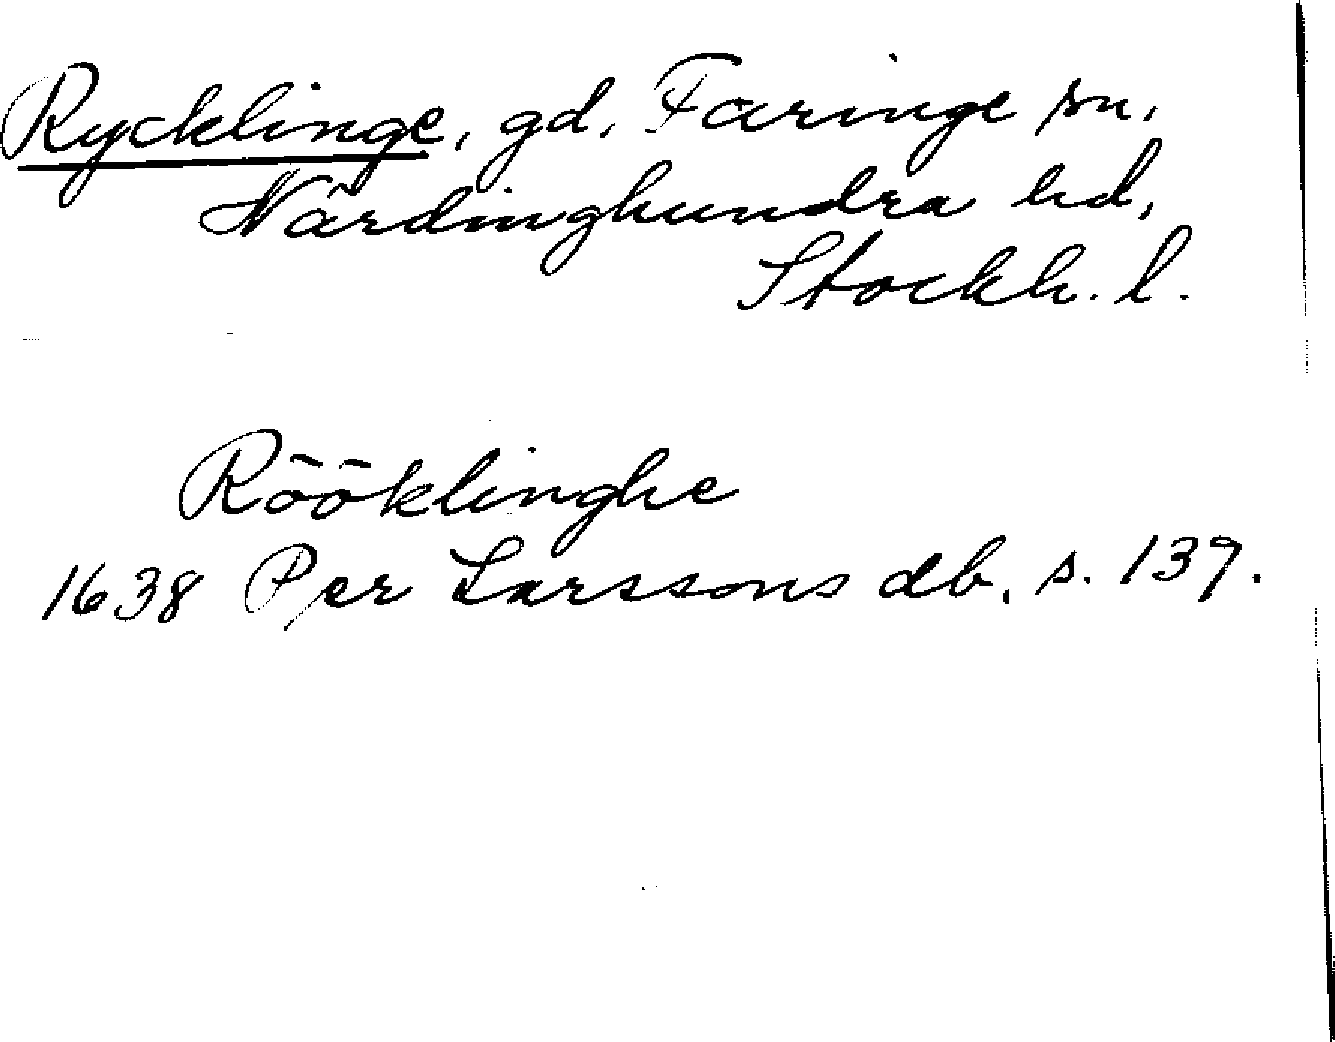 Rycklinge, gd, Faringe sn,
Närdinghundra hd,
Stockh. l.
Rööklinghe
1638 Per Larssons db. s. 139.